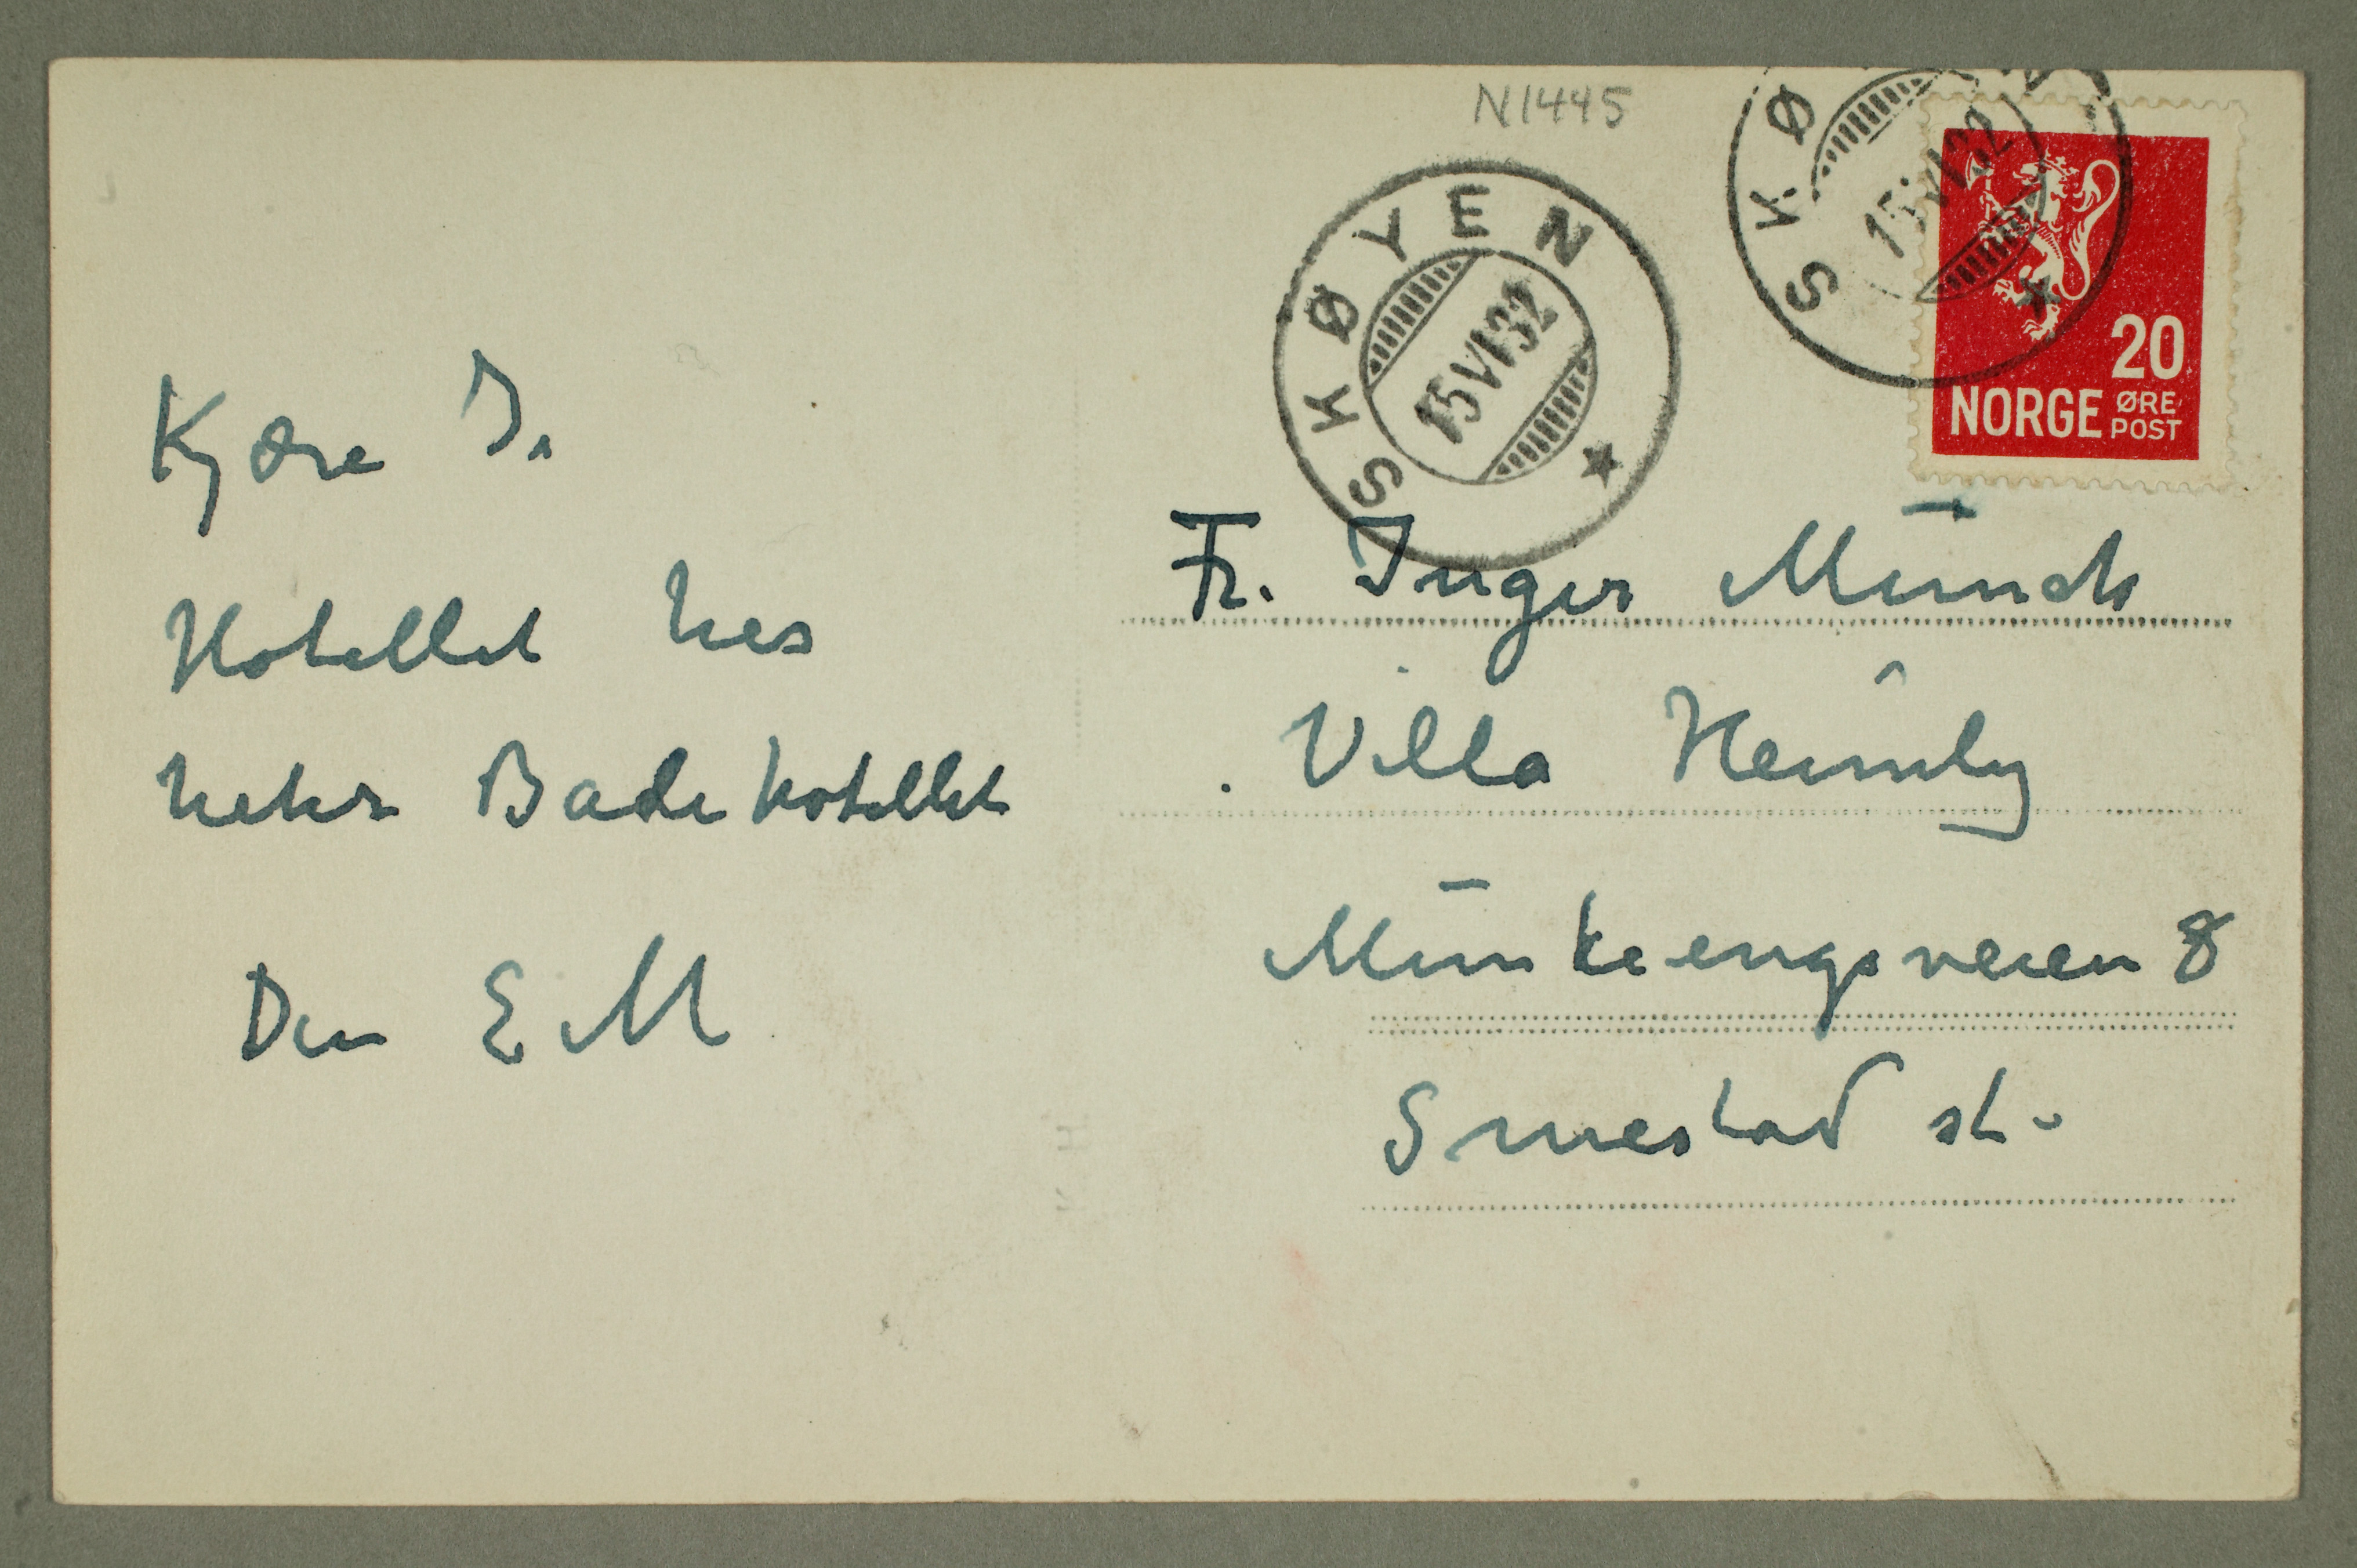 N1445
SKØYEN
15 VI 32
SKØ
15 VI 32
20
NORGE ØRE POST
Kjære I.
Hotellet hes
heter Badehotellet
Din EM
Fr. Inger Munch
Villa Heimly
Munkeengsveien 8
Smestad st.